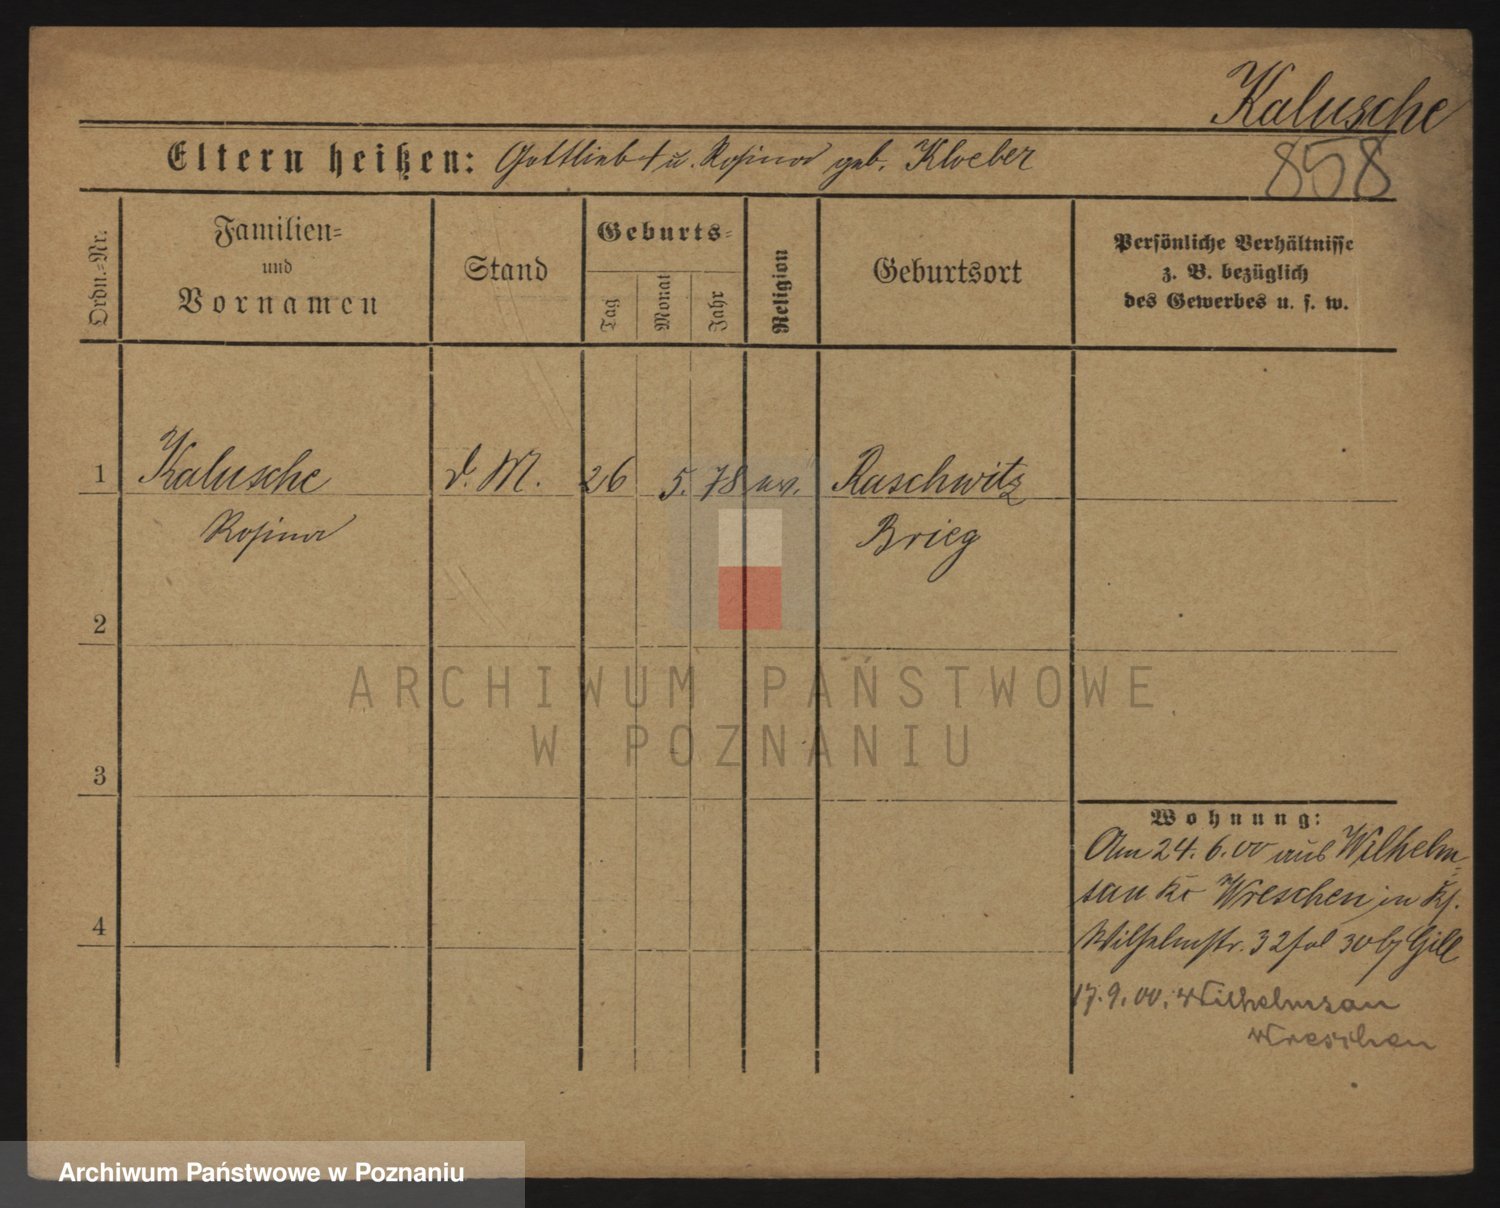 Kalusche
858
Eltern heißen: Gottlieb † u. Rosina geb. Kloeber
Ordn.-Nr.
Familien-
und
Vornamen
Stand
Geburts-
Tag
Monat
Jahr
Religion
Geburtsort
Persönliche Verhältnisse
z. B. bezüglich
des Gewerbes u. s. w.
1 Kalusche d. M. 26 5. 78 ev. Raschwitz
Rosina Brieg
2
3
4
ARCHIWUM PAŃSTWOWE
W POZNANIU
Wohnung:
Am 24. 6. 00 aus Wilhelms-
au Kr Wreschen in
Wilhelmstr. 32 bj Gill
17. 9. 00. Wilhelmsau
Wreschen
Archiwum Państwowe w Poznaniu